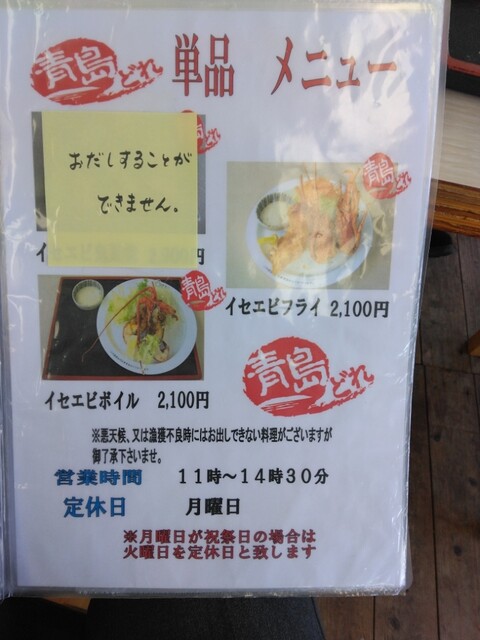 青島どれ 単品 メニュー
おだしすることが
できません。
青島どれ
イセエビフライ 2,100円
青島どれ
イセエビボイル 2,100円
青島どれ
※悪天候、又は漁獲不良時にはお出しできない料理がございますが
御了承下さいませ。
営業時間 11時～14時30分
定休日 月曜日
※月曜日が祝祭日の場合は
火曜日を定休日と致します